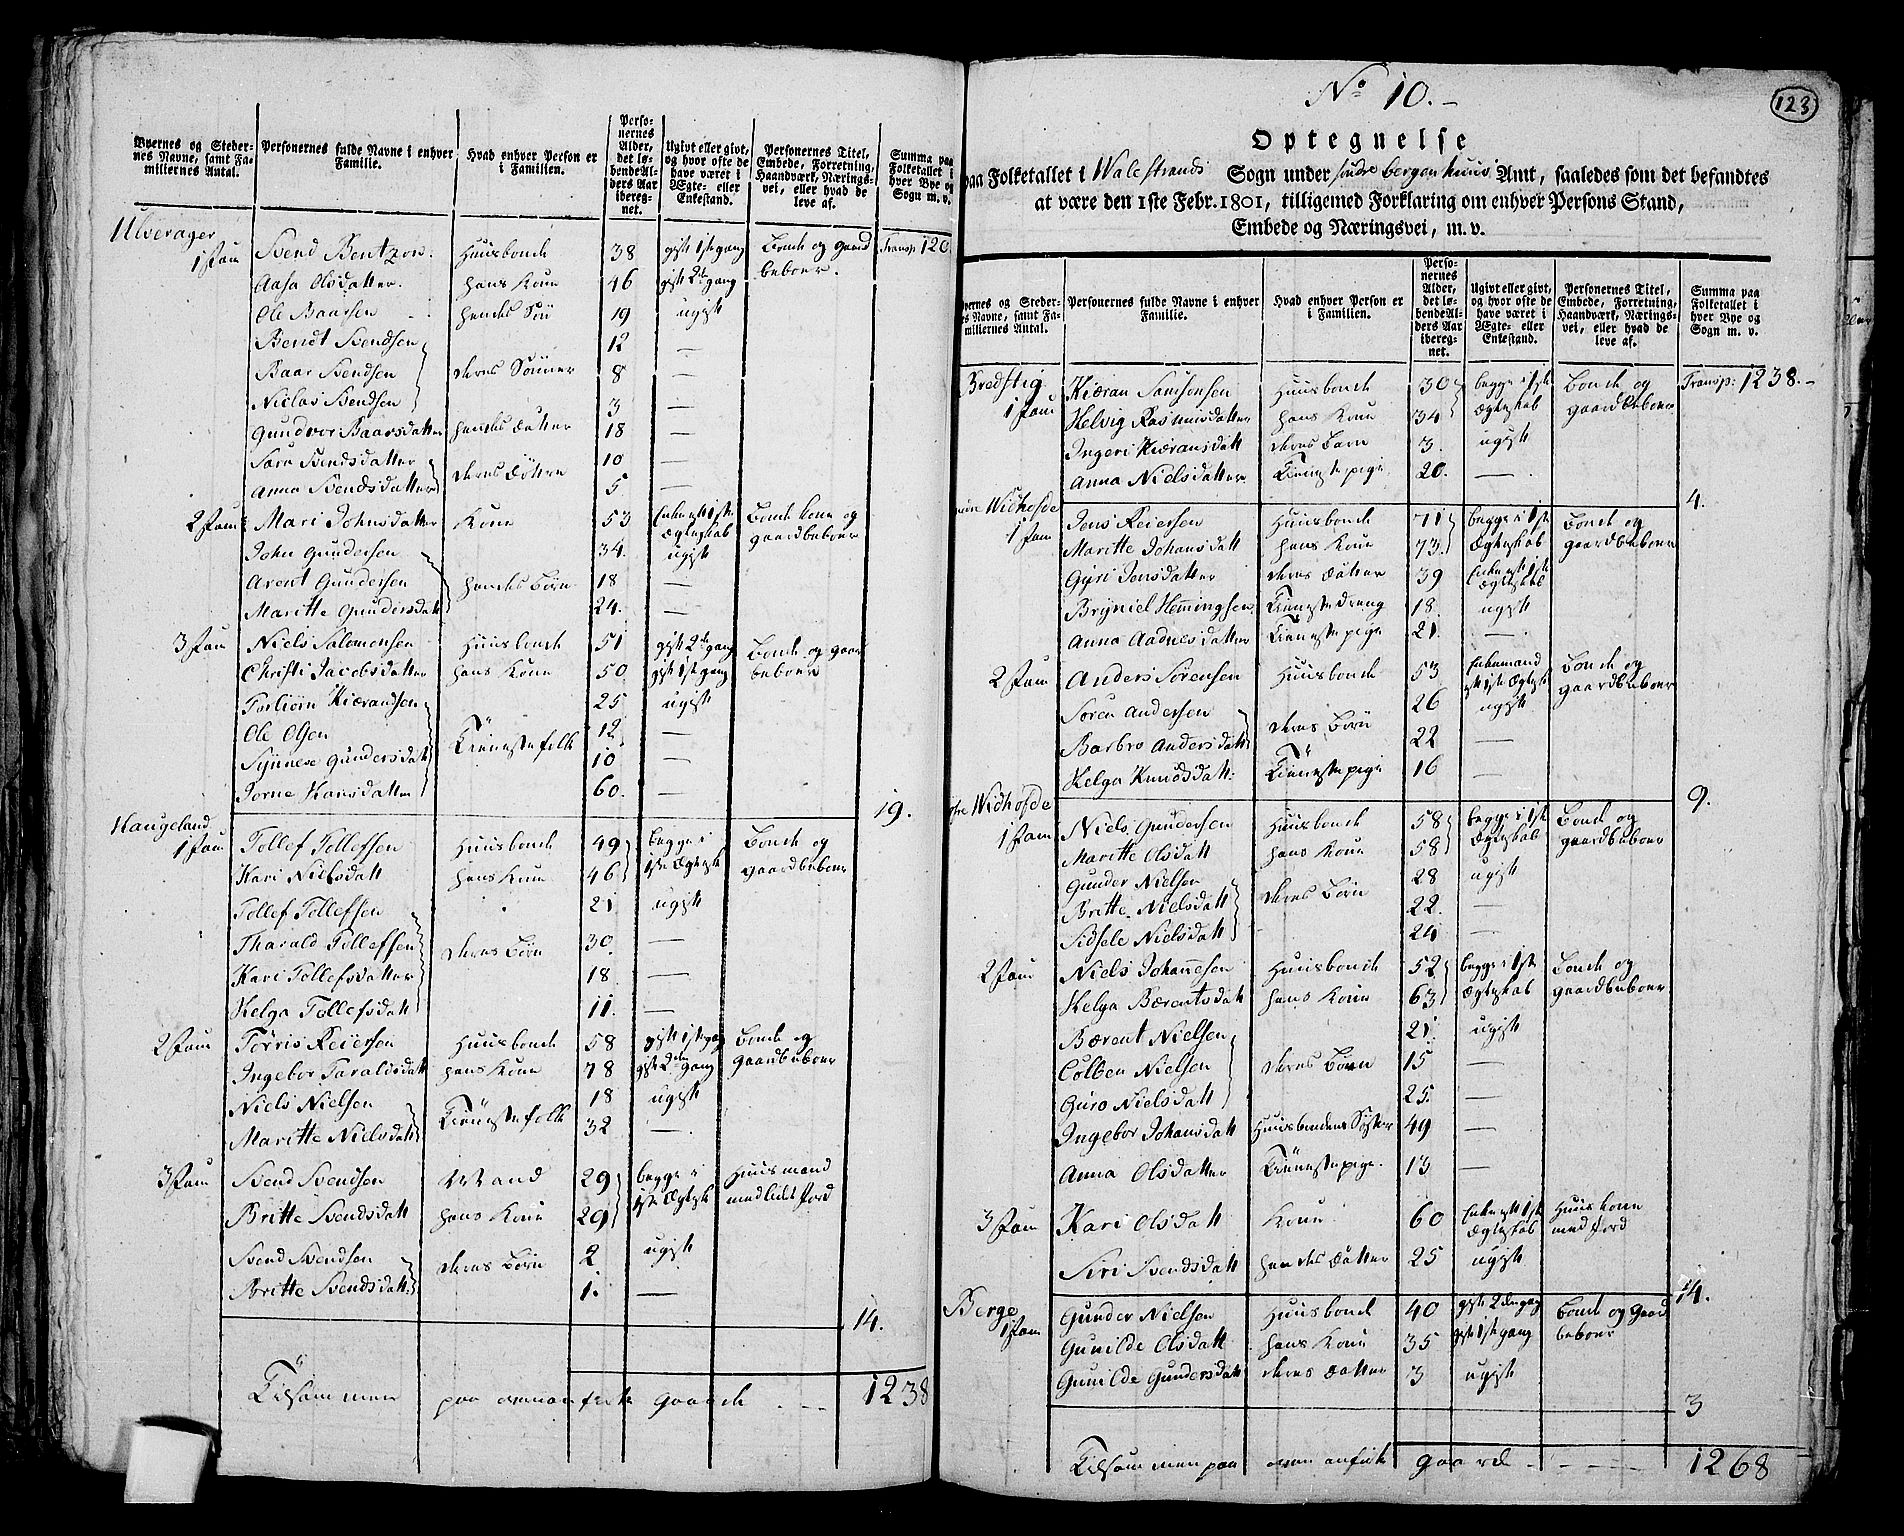 Byernes og Steder-
nes Navne, samt Fa-
miliernes Antal.
Personernes fulde Navne i enhver
Familie.
Hvad enhver Person er
i Familien.
Perso-
nernes
Alder,
det lø-
bende Al-
ders Aar
ibereg-
net.
Ugivt eller givt,
og hvor ofte de
have været i
Ægte- eller
Enkestand.
Personernes Titel,
Embede, Forretning,
Haandværk, Nærings-
vei, eller hvad de
leve af.
Summa paa
Folketallet i
hver Bye og
Sogn m. v.
Ulverager
1 Fam Svend Bentzon. Huusbonde 38 gift 1ste gang Bonde og gaard Transp 120
Aasa Olsdatter. hans Kone 46 gift 2den gang beboer.
Ole Baarsen hendes Søn 19 ugift
Bendt Svendsen 12 —
Baar Svendsen deres Sønner 8 —
Niclas Svendsen 3 —
Gundvor Baarsdatter hendes Datter 18 —
Sara Svendsdatter deres Døttre 10 —
Anna Svendsdatter 5 —
2 Fam Mari Johnsdatter Kone 53 Enke eft 1ste Bonde kone og
John Gundersen 34. Ægteskab gaardbeboer
ugift
Arent Gundersen hendes Børn 18 —
Maritte Gundersdatt 24. —
3 Fam Niels Salomonsen Huusbonde 51 gift 2de gang Bonde og gaar
Christi Jacobsdatter hans Kone 50 gift 1ste gang beboer
Torbiørn Kiærandsen 25 ugift
Ole Olsen 12 —
Tieneste folk
Synneve Gundersdatt 10 —
Jorne Hansdatter 60. —
19.
Haugeland
1 Fam Tollef Tollefsen Huusbonde 49 begge i Bonde og
Kari Nielsdatt hans Kone 46 1ste Ægtesk gaardbeboer
Tollef Tollefsen 21 ugift
Tharald Tollefsen deres Børn 30 —
Kari Tollefsdatter 18 —
Helga Tollefsdatt 11. —
2 Fam Torris Reiersen Huusbonde 58 gift 1ste gag Bonde og
Ingebor Taraldsdatt hans Kone 78 gift 2den gang gaardbeboer
Niels Nielsen 18 ugift
Tieneste folk
Maritte Nielsdatt 32 —
3 Fam Svend Svendsen Mand 29 begge i Huusmand
Britte Svendsdatt hans Kone 29 1ste Ægtesk med lidet Jord
Svend Svendsen deres Børn 2 ugift
Britte Svendsdatt 1. —
14.
Tilsammen paa ommanførte gaarde 1238
No 10.
123
Optegnelse
paa Folketallet i Walestrands Sogn under søndre bergenhuus Amt, saaledes som det befandtes
at være den 1ste Febr. 1801, tilligemed Forklaring om enhver Persons Stand,
Embede og Næringsvei, m. v.
Byernes og Steder-
nes Navne, samt Fa-
miliernes Antal.
Personernes fulde Navne i enhver
Familie.
Hvad enhver Person er
i Familien.
Perso-
nernes
Alder,
det lø-
bende Al-
ders Aar
ibereg-
net.
Ugivt eller givt,
og hvor ofte de
have været i
Ægte- eller
Enkestand.
Personernes Titel,
Embede, Forretning,
Haandværk, Nærings-
vei, eller hvad de
leve af.
Summa paa
Folketallet i
hver Bye og
Sogn m. v.
Bredstig
1 Fam Kiæran Samsonsen Huusbonde 30 begge i 1ste Bonde og Transp: 1238.
Helvig Rasmusdatter hans Kone 34 Ægteskab gaardbeboer
Ingeri Kiæransdatt deres barn 3. ugift
Anna Nielsdatter Tieneste pige 20. —
4.
Widhofde
1 Fam Jens Reiersen Huusbonde 71 begge i 1ste Bonde og
Maritte Johansdatt hans Kone 73. Ægteskab gaardbeboer
Gyri Jensdatter deres datter 39 Enke eft 1ste
Ægteskab
Bryniel Hemingsen Tieneste dreng 18. ugift
Anna Aadnesdatter Tieneste pige 21. —
2 Fam Anders Sørensen Huusbonde 53 Enkemand Bonde og
eft 1ste Ægtesk gaardbeboer
Søren Andersen deres Børn 26 ugift
Barbro Andersdatt 22 —
Helga Knudsdatt: Tieneste pige 16 —
9.
Widhofde
1 Fam Niels Gundersen Huusbonde 58 begge i 1ste Bonde og
Maritte Olsdatt hans Kone 58 Ægteskab gaardbeboer
Gunder Nielsen 28 ugift
Britte Nielsdatt deres Børn 22. —
Sidsele Nielsdatt 24 —
2 Fam Niels Johannesen Huusbonde 52 begge i 1ste Bonde og
Helga Bærentsdatt hans Kone 63 Ægteskab gaardbeboer
Bærent Nielsen 21 ugift
Colben Nielsen deres Børn 15 —
Guro Nielsdatt 25. —
Ingebor Johansdatt Huusbondens Søster 49 —
Anna Olsdatter Tieneste pige. 13 —
3 Fam Kari Olsdatt Kone 60 Enke eft 1ste Huuskone
Ægteskab med Jord
Siri Svendsdatt hendes datter 25 ugift
14.
Berge
1 Fam Gunder Nielsen Huusbonde 40 gift 2den gag Bonde og gaard
Gunilde Olsdatt hans Kone 35 gift 1ste gang beboer
Gunilde Gundersdatt deres datter 3 ugift
3
Tilsammen paa omanførte gaard 1268